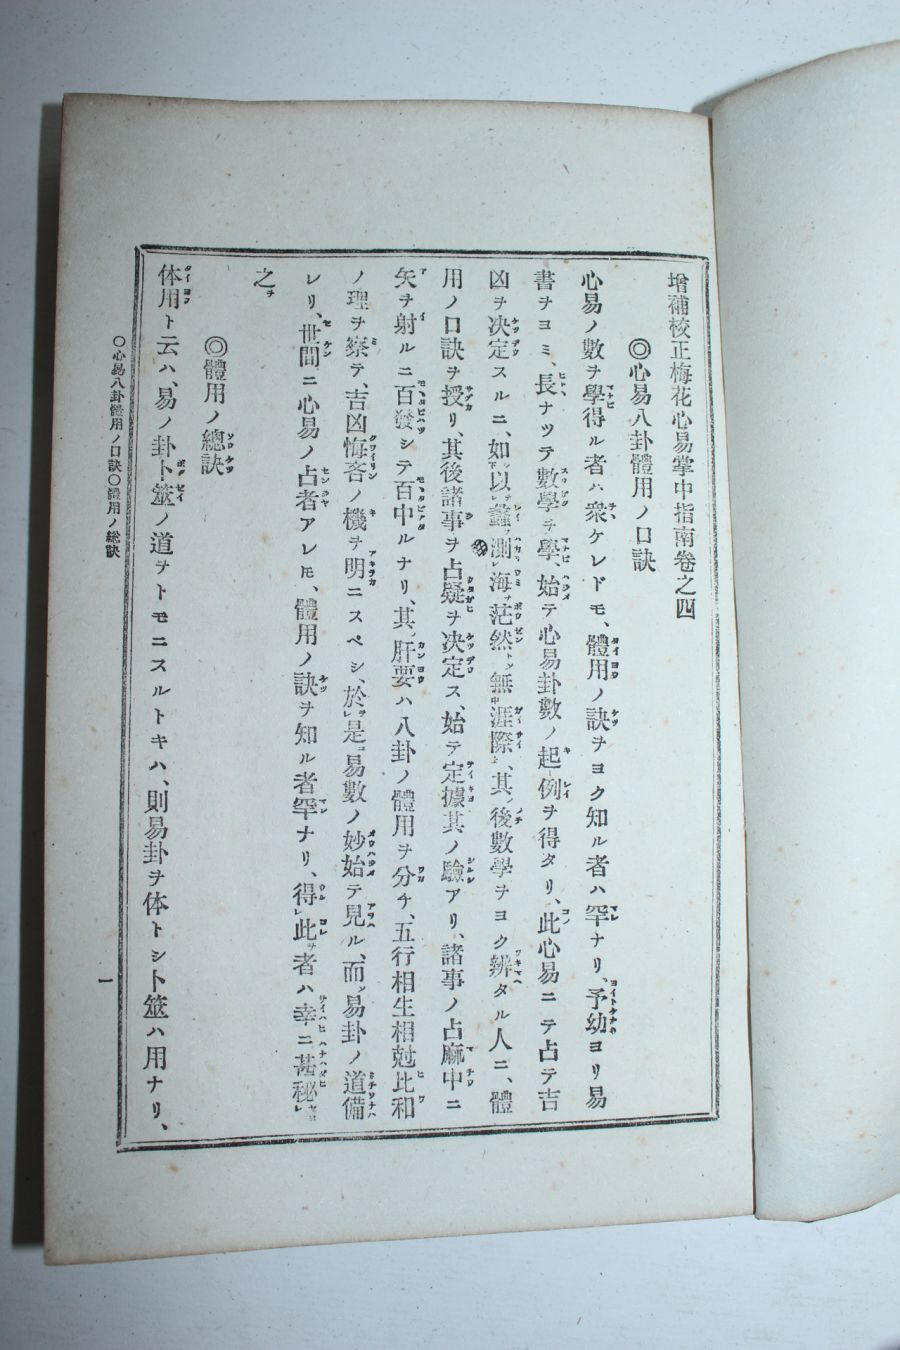 增補校正梅花心易掌中指南卷之四
◎心易八卦體用ノ口訣
心易ノ數ヲ學得ル者ハ衆ケレドモ、體用ノ訣ヲヨク知ル者ハ罕ナリ、予幼ヨリ易
書ヲヨミ、長ナツテ數學ヲ學、始テ心易卦數ノ起例ヲ得タリ、此心易ニテ占テ吉
凶ヲ决定スルニ、如以蠡測海茫然無涯際、其後數學ヲヨク辨タル人ニ、體
用ノ口訣ヲ授リ、其後諸事ヲ占疑ヲ决定ス、始テ定據其ノ驗アリ、諸事ノ占庥中ニ
矢ヲ射ルニ百發シテ百中ルナリ、其肝要ハ八卦ノ體用ヲ分チ、五行相生相尅比和
ノ理ヲ察テ、吉凶悔吝ノ機ヲ明ニスベシ、於是易數ノ妙始テ見ル、而易卦ノ道備
レリ、世間ニ心易ノ占者アレ𪜈、體用ノ訣ヲ知ル者罕ナリ、得此者ハ幸ニ甚秘
之ヲ
◎體用ノ總訣
体用ト云ハ、易ノ卦卜筮ノ道ヲトモニスルトキハ、則易卦ヲ体トシ卜筮ハ用ナリ、
○心易八卦體用ノ口訣○體用ノ総訣
一